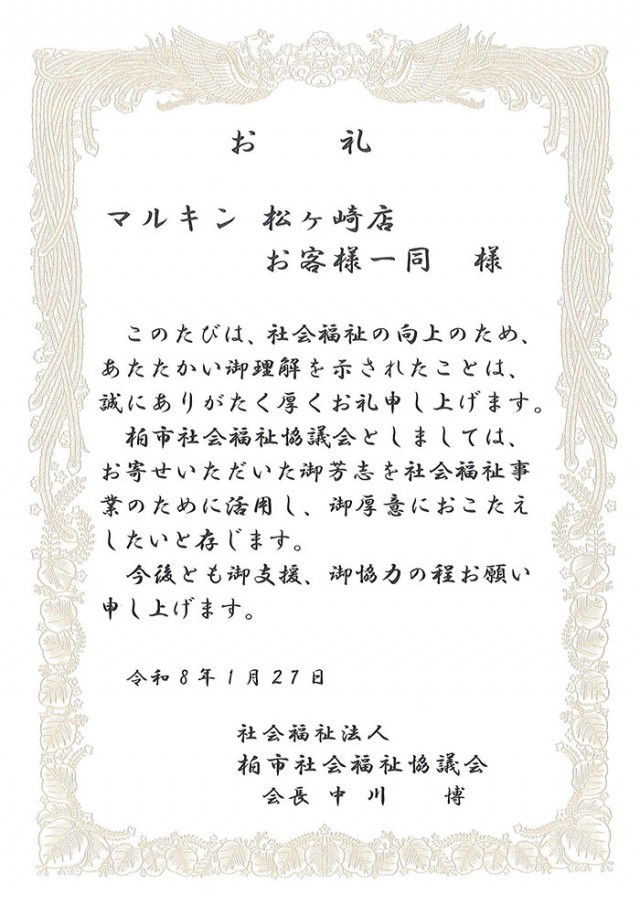 お 礼
マルキン 松ヶ崎店
お客様一同 様
このたびは、社会福祉の向上のため、
あたたかい御理解を示されたことは、
誠にありがたく厚くお礼申し上げます。
柏市社会福祉協議会としましては、
お寄せいただいた御芳志を社会福祉事
業のために活用し、御厚意におこたえ
したいと存じます。
今後とも御支援、御協力の程お願い
申し上げます。
令和8年1月27日
社会福祉法人
柏市社会福祉協議会
会長 中川 博